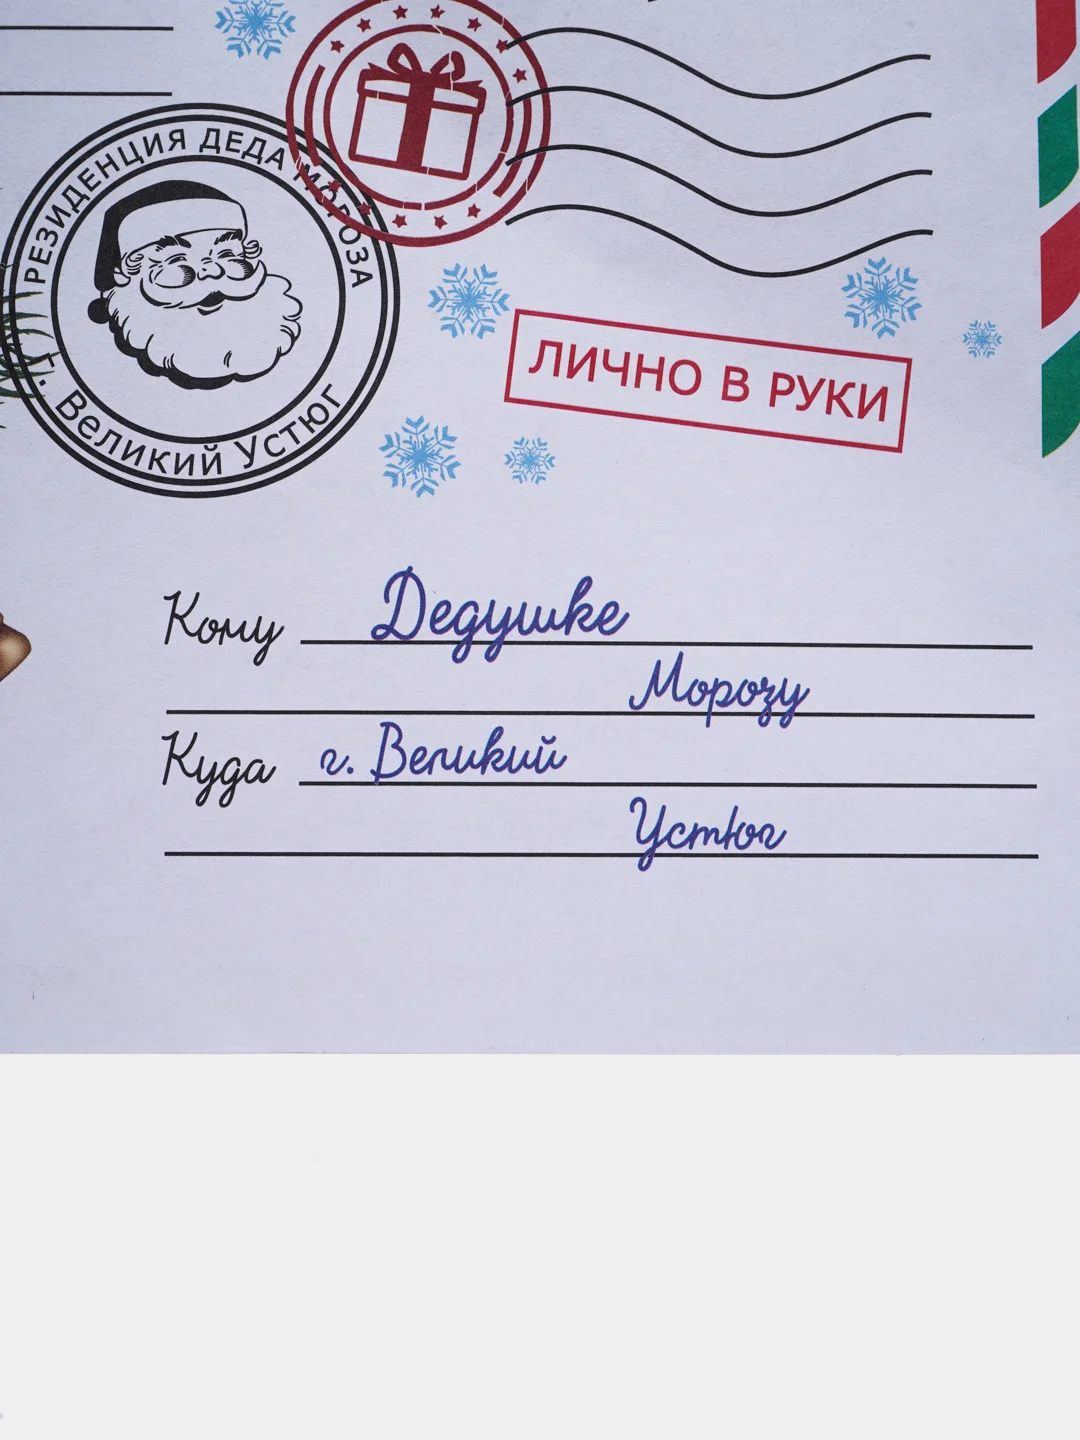 РЕЗИДЕНЦИЯ ДЕДА МОРОЗА
г. Великий Устюг
ЛИЧНО В РУКИ
Кому Дедушке
Морозу
Куда г. Великий
Устюг